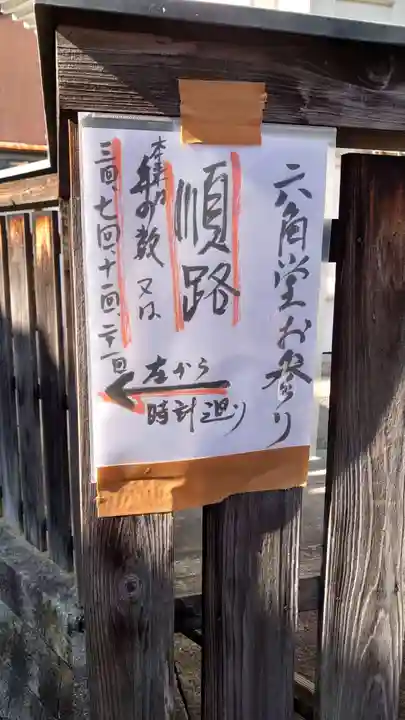 六角堂お参り
順路
左から
時計廻り
年の数又は
三回、七回、十一回、二十一回